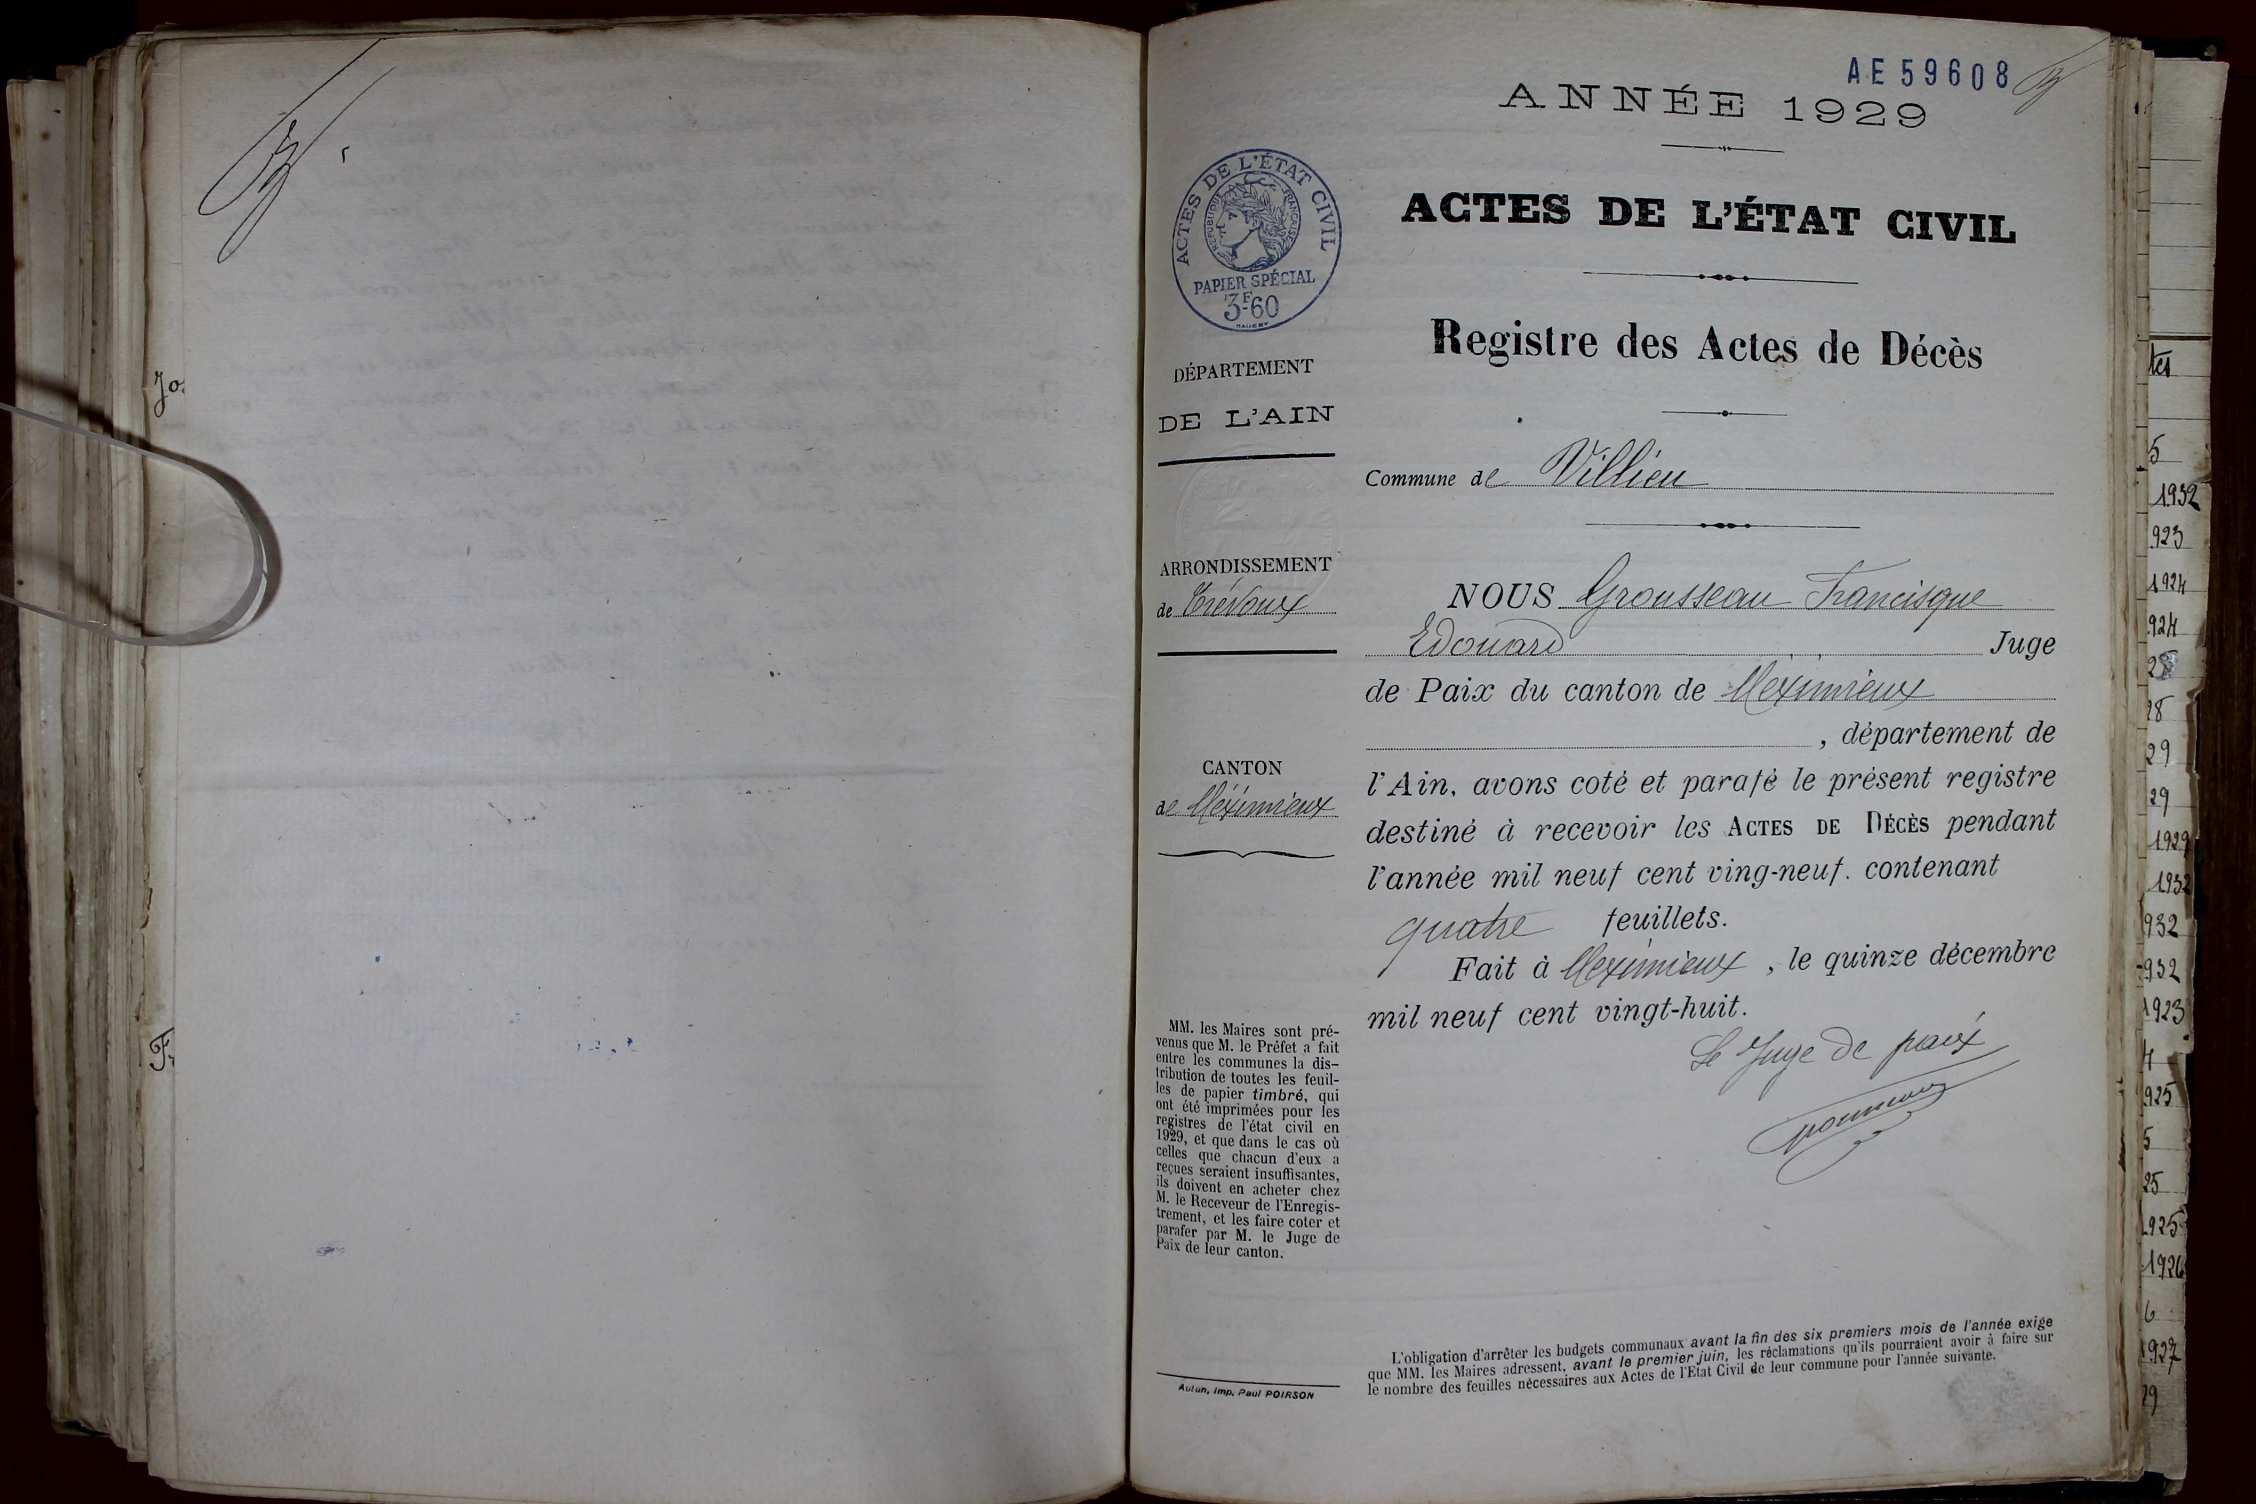 Jo.
F.
AE 59608
ANNÉE 1929
ACTES DE L'ÉTAT CIVIL
RÉPUBLIQUE FRANÇAISE
PAPIER SPÉCIAL
3F60
ACTES DE L'ÉTAT CIVIL
Registre des Actes de Décès
DÉPARTEMENT
DE L'AIN
Commune de Villieu
ARRONDISSEMENT
de Trévoux
CANTON
de Méximieux
NOUS Grousseau Francisque
Edouard Juge
de Paix du canton de Méximieux
, département de
l'Ain, avons coté et parafé le présent registre
destiné à recevoir les ACTES DE DÉCÈS pendant
l'année mil neuf cent ving-neuf. contenant
quatre feuillets.
Fait à Meximieux, le quinze décembre
mil neuf cent vingt-huit.
Le Juge de paix
MM. les Maires sont pré-
venus que M. le Préfet a fait
entre les communes la dis-
tribution de toutes les feuil-
les de papier timbré, qui
ont été imprimées pour les
registres de l'état civil en
1929, et que dans le cas où
celles que chacun d'eux a
reçues seraient insuffisantes,
ils doivent en acheter chez
M. le Receveur de l'Enregis-
trement, et les faire coter et
parafer par M. le Juge de
Paix de leur canton.
Autun, Imp. Paul POIRSON
L'obligation d'arrêter les budgets communaux avant la fin des six premiers mois de l'année exige
que MM. les Maires adressent, avant le premier juin, les réclamations qu'ils pourraient avoir à faire sur
le nombre des feuilles nécessaires aux Actes de l'Etat Civil de leur commune pour l'année suivante.
tes
5
1932
923
1924
924
28
29
29
1929
1932
932
932
1923
4
925
5
25
1925
1926
6
1927
29